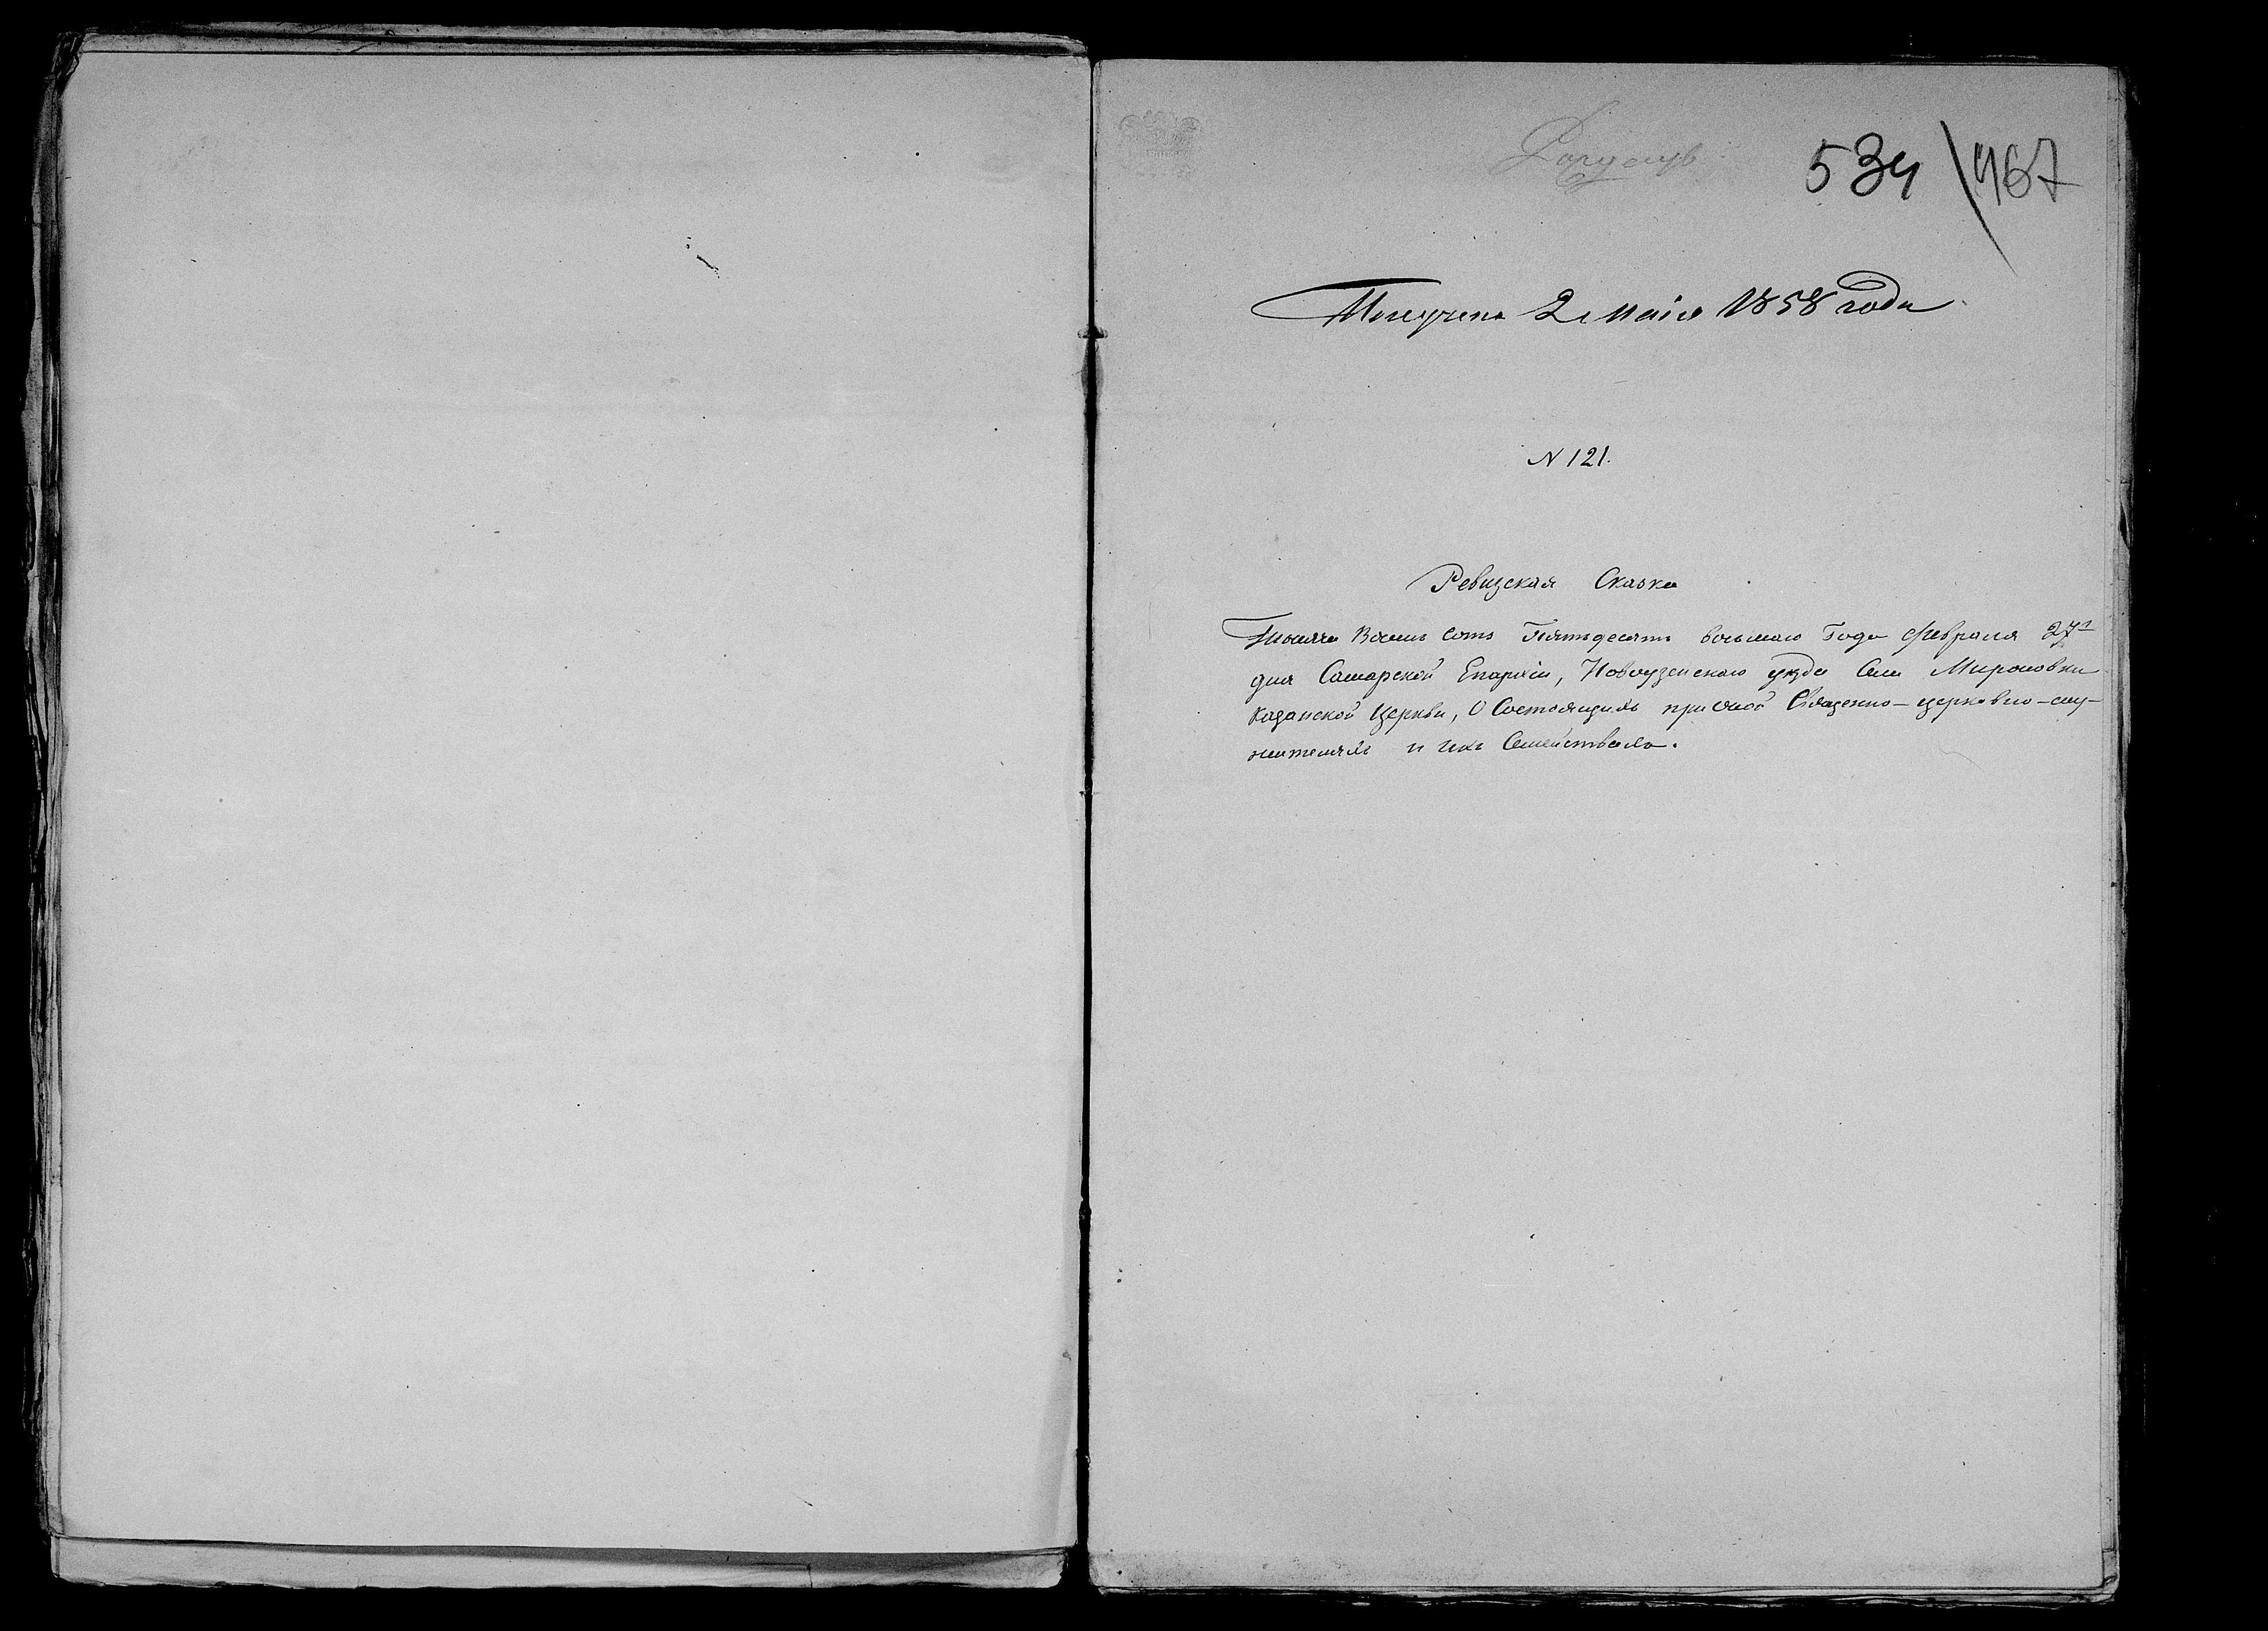 534 467
Получена 2 маія 1858 года
N 121.
Ревизская Сказка
Тысяча Восемь сотъ Пятьдесятъ восьмаго Года Февраля 27го
дня Самарской Епархіи, Новоузенскаго уезда Села Мироновки
Казанской Церкви, О Состоящихъ при оной Священно-церковно-слу-
жителяхъ и ихъ Семействахъ.